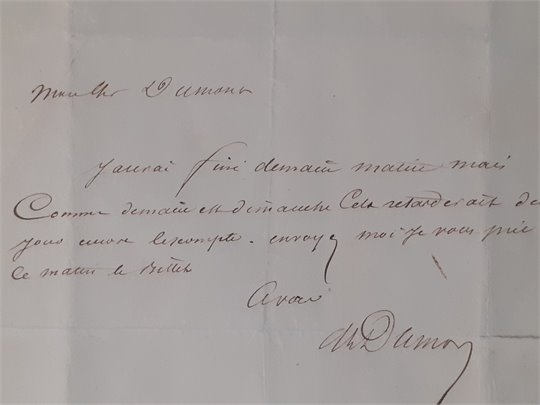 Mon cher Dumont
J'aurai fini demain matin mais
Comme demain est dimanche Cela retarderait de
jour encore l'escompte. envoyez moi je vous prie
Ce matin le Billet
A vous
Ch Dumon